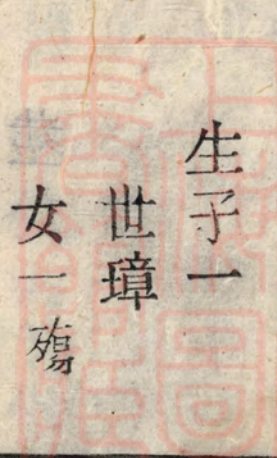 生子一
世璋
女一殤